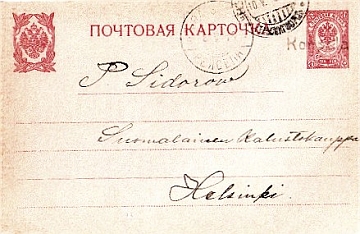 ПОЧТОВАЯ КАРТОЧКА
P Sidorow
Suomalainen Kalustokauppa
Helsinki.